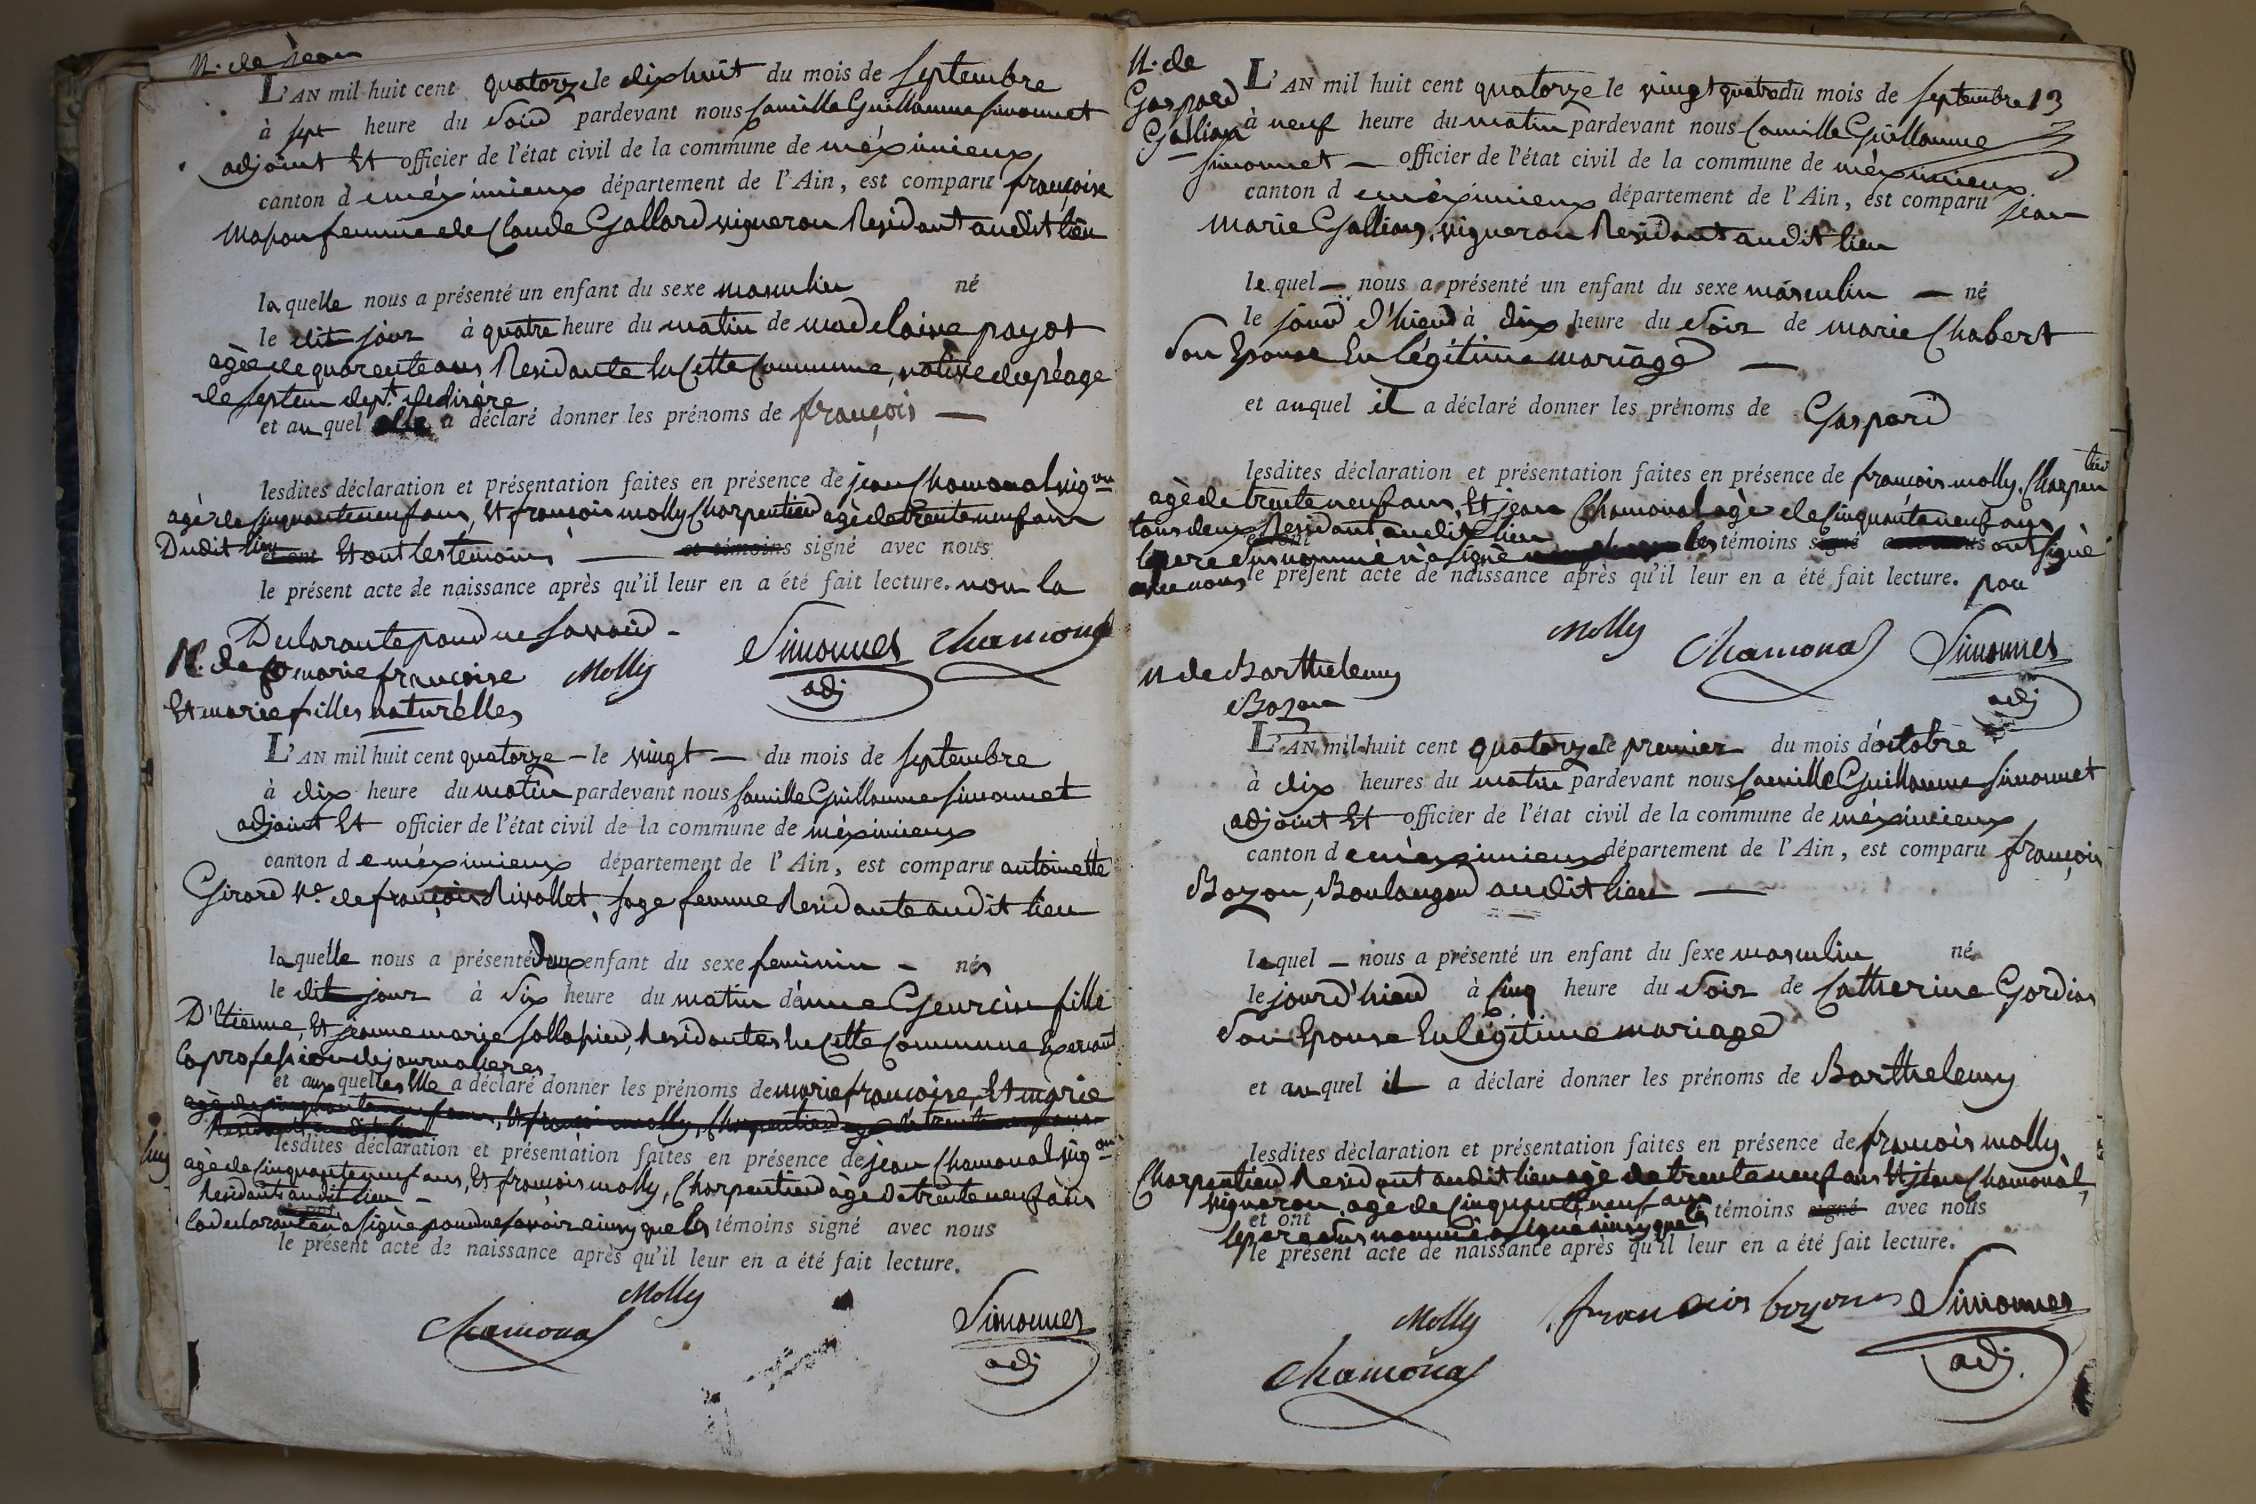 N. de Jean
L'AN mil huit cent quatorze le dix huit du mois de Septembre
à sept heure du Soir pardevant nous Camille Guillaume Simonnet
adjoint Et officier de l'état civil de la commune de méximieux
canton de méximieux département de l'Ain, est comparu françoise
femme de Claude Gallard vigneron Residant audit lieu
laquelle nous a présenté un enfant du sexe masculin né
le dit jour à quatre heure du matin de madelaine payot
agée de quarente ans Residante En Cette Commune, native du péage
de Septem dept. de lisère
et au quel elle a déclaré donner les prénoms de françois
lesdites déclaration et présentation faites en présence de jean Chamonal vigon
agé de Cinquante neuf ans, Et françois molly Charpentier agé de trente neuf ans
Dudit lieu et ont Et ont les témoins et témoins signé avec nous
le présent acte de naissance après qu'il leur en a été fait lecture. non la
Declarante pour ne Savoir
Molly Simonnet Chamonal
adj
N. de marie françoise
Et marie filles naturelles
L'AN mil huit cent quatorze le vingt du mois de Septembre
à dix heure du matin pardevant nous Camille Guillaume Simonnet
adjoint Et officier de l'état civil de la commune de méximieux
canton de méximieux département de l'Ain, est comparu antoinette
Girard Ve. de françois Rivollet, Sage femme Residante audit lieu
laquelle nous a présenté Deux enfant du sexe feminin nés
le dit jour à Six heure du matin d'anne Geurcin fille
D'Etienne, Et jeanne marie Collapied, Residantes En Cette Commune Exercant
la profession de journalieres
et aux quelles Elle a déclaré donner les prénoms de marie françoise, Et marie
agé de Cinquante neuf ans, Et françois molly, Charpentier agé de trente neuf ans
Residants audit lieu
lesdites déclaration et présentation faites en présence de jean Chamonal vigon
agé de Cinquante neuf ans, Et françois molly, Charpentier agé De trente neuf ans
Residants audit lieu
et ont
la declarante n'a Signé pour ne Savoir ainsy que les témoins signé avec nous
le présent acte de naissance après qu'il leur en a été fait lecture.
Molly
Chamonal Simonnet
adj
N. de
Gaspard
Gallian
L'AN mil huit cent quatorze le vingt quatre du mois de Septembre 13
à neuf heure du matin pardevant nous Camille Guillaume
Simonnet officier de l'état civil de la commune de méximieux
canton de méximieux département de l'Ain, est comparu jean
marie Gallian, vigneron Residant audit lieu
le quel nous a présenté un enfant du sexe masculin né
le jour d'hier à dix heure du Soir de marie Chabert
Son Epouse En légitime mariage
et auquel il a déclaré donner les prénoms de Gaspard
lesdites déclaration et présentation faites en présence de françois molly, Charpentier
agé de trente neuf ans, Et jean Chamonal agé de Cinquante neuf ans
tous deux Residant audit lieu
et ont
le pere Susnommé n'a Signé les témoins signé avec nous ont Signé
avec nous le présent acte de naissance après qu'il leur en a été fait lecture. pou
Molly Chamonal Simonnet
adj
N de Barthelemy
Bozon
L'AN mil huit cent quatorze le premier du mois d'octobre
à dix heures du matin pardevant nous Camille Guillaume Simonnet
adjoint Et officier de l'état civil de la commune de méximieux
canton de méximieux département de l'Ain, est comparu françois
Bozon, Boulanger audit lieu
lequel nous a présenté un enfant du sexe masculin né
le jour d'hier à Cinq heure du Soir de Catherine Gordias
Son Epouse En légitime mariage
et au quel il a déclaré donner les prénoms de Barthelemy
lesdites déclaration et présentation faites en présence de françois molly,
Charpentier Residant audit lieu agé de trente neuf ans Et jean Chamonal,
vigneron, agé de Cinquante neuf ans
et ont témoins signé avec nous
le pere Susnommé a Signé ainsy que les
le présent acte de naissance après qu'il leur en a été fait lecture.
Molly françois bozon Simonnet
Chamonal adj.